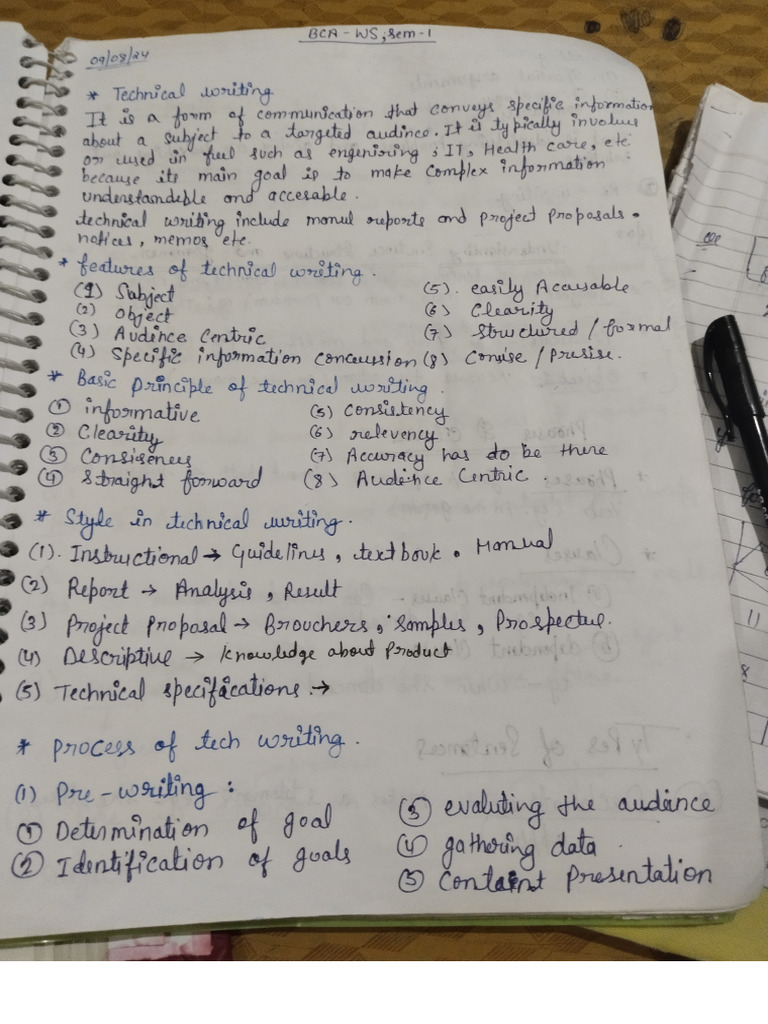 BCA - WS, Sem - 1
09/08/24
* Technical writing
It is a form of communication that conveys specific information
about a subject to a targeted audince. It is typically involves
or used in fuel such as engeniring, IT, Health care, etc
because its main goal is to make complex information
understandeble and accesable.
technical writing include manul reports and project proposals.
notices, memos etc.
* features of technical writing.
(1) Subject
(2) Object
(3) Audince Centric
(4) Specific information concussion
(5). easily Accusable
(6) Clearity
(7) Structured / formal
(8) Consise / Presise.
* Basic principle of technical writing.
(1) informative
(2) Clearity
(3) Consiseness
(4) Straight forward
(5) Consistency
(6) relevency
(7) Accuracy has do be there
(8) Audience Centric.
* Style in technical writing.
(1). Instructional → Guidelines, textbook. Manual
(2) Report → Analysis, Result
(3) Project Proposal → Brouchers, Samples, Prospectus.
(4) Descriptive → Knowledge about Product
(5) Technical specifications. →
* Process of tech writing.
(1) Pre-writing :
(1) Determination of goal
(2) Identification of goals
(3) evaluting the audance
(4) gathering data.
(5) Containt Presentation